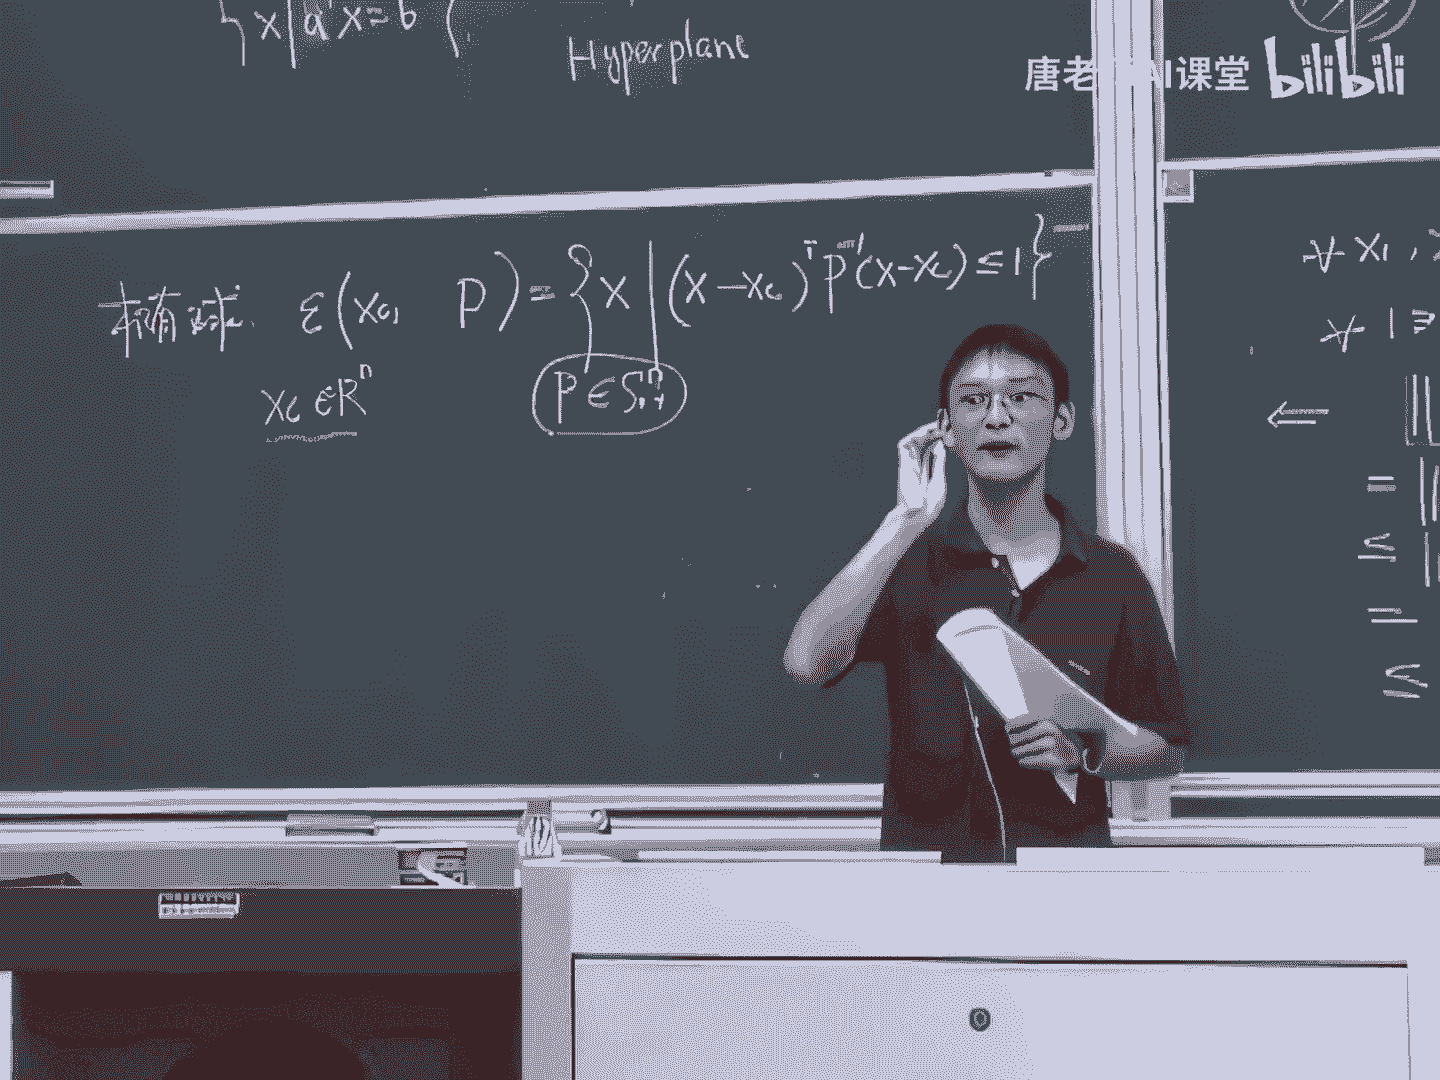 {x|aᵀx=b}
Hyperplane
唐老 AI课堂 bilibili
椭球 ε(xc, P)={x|(x-xc)ᵀP⁻¹(x-xc)≤1}
xc∈Rⁿ P∈Sⁿ₊₊
∀ x₁,
∀ 1≥
⇐ ||
= ||
≤ ||
=
≤